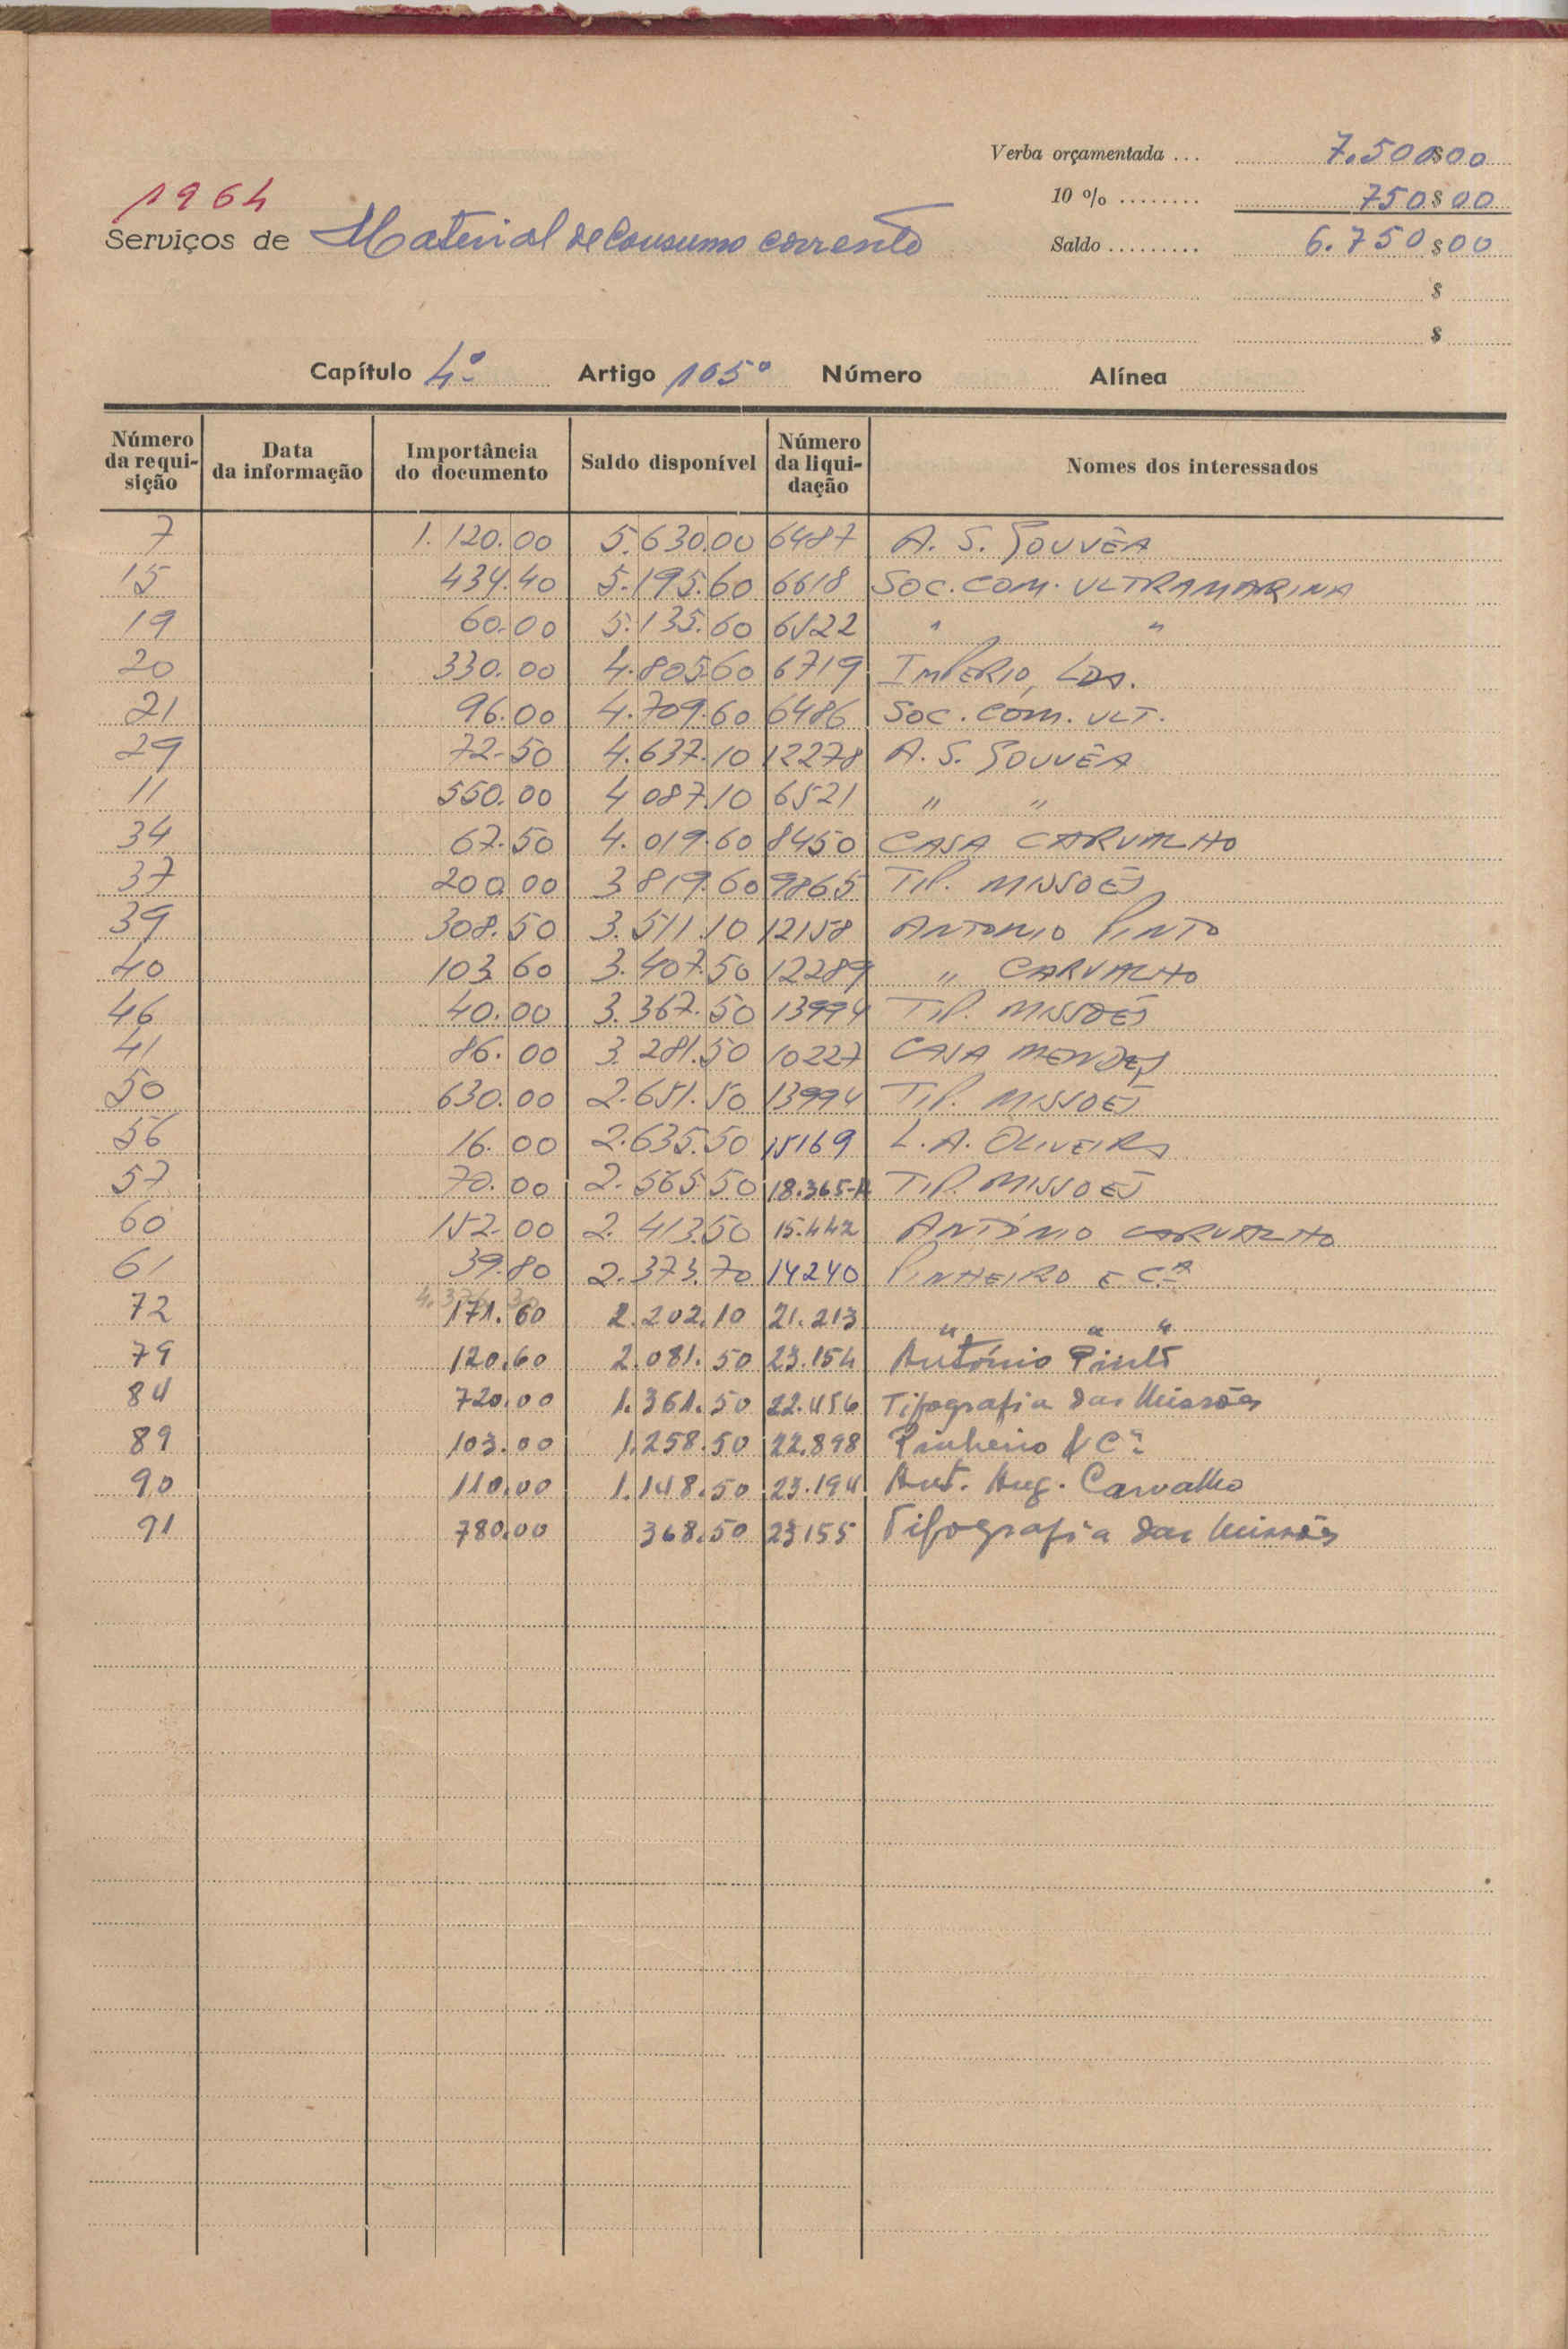 Verba orçamentada ... 7.500$00
1964
10 % ........ 750$00
Serviços de Material de Consumo corrente
Saldo ......... 6.750$00
$
$
Capítulo 4º Artigo 105º Número Alínea
Número da requi- sição Data da informação Importância do documento Saldo disponível Número da liqui- dação Nomes dos interessados
7 1.120.00 5.630.00 6487 A. S. GOUVÊA
15 434.40 5.195.60 6618 SOC. COM. ULTRAMARINA
19 60.00 5.135.60 6522 " "
20 330.00 4.805.60 6719 IMPERIO, LDA.
21 96.00 4.709.60 6486 SOC. COM. ULT.
29 72.50 4.637.10 12278 A. S. GOUVÊA
11 550.00 4 087.10 6521 " "
34 67.50 4.019.60 8450 CASA CARVALHO
37 200.00 3 819.60 9865 TIP. MISSÕES
39 308.50 3.511.10 12158 ANTONIO PINTO
40 103.60 3.407.50 12289 " CARVALHO
46 40.00 3.367.50 13994 TIP. MISSÕES
41 86.00 3.281.50 10227 CASA MENDES
50 630.00 2.651.50 13994 TIP. MISSÕES
56 16.00 2.635.50 15169 L. A. OLIVEIRA
57 70.00 2.565.50 18.365-A TIP. MISSÕES
60 152.00 2.413.50 15.442 ANTÓNIO CARVALHO
61 39.80 2.373.70 14240 PINHEIRO E C.ª
4.376.30
72 171.60 2.202.10 21.213 " " "
79 120.60 2.081.50 23.154 António Pinto
84 720.00 1.361.50 22.456 Tipografia das Missões
89 103.00 1.258.50 22.898 Pinheiro & Cª
90 110.00 1.148.50 23.194 Ant. Aug. Carvalho
91 780.00 368.50 23155 Tipografia das Missões